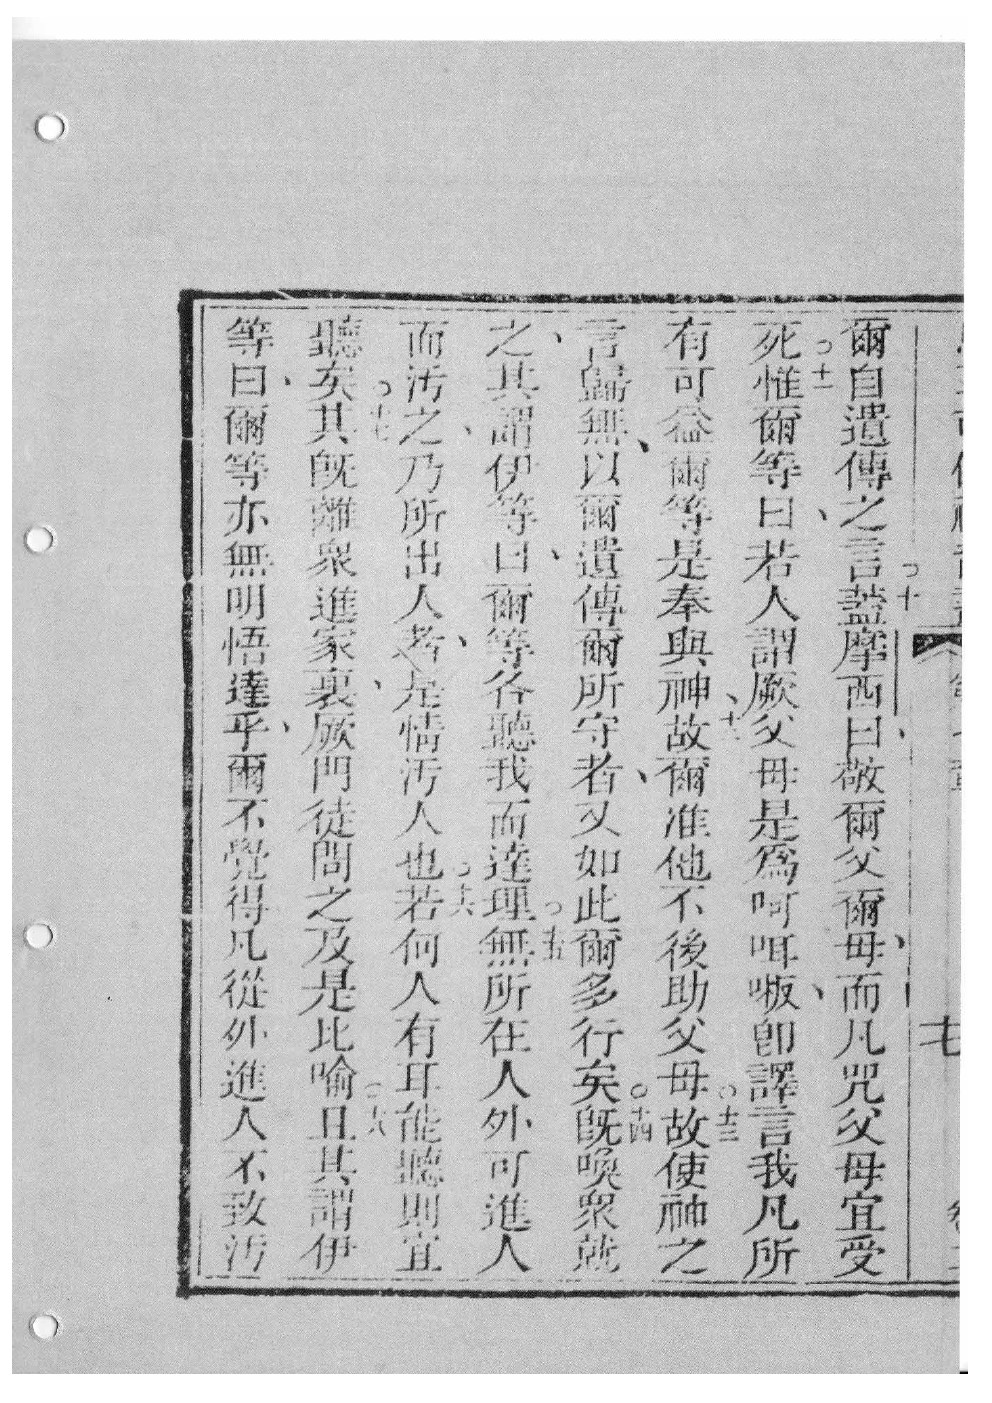 七
爾自遺傳之言葢摩西曰敬爾父爾母而凡咒父母宜受
死惟爾等曰若人謂厥父母是爲呵咡㗑卽譯言我凡所
有可益爾等是奉與神故爾准他不後助父母故使神之
言歸無以爾遺傳爾所守者又如此爾多行矣旣喚衆就
之其謂伊等曰爾等各聽我而達理無所在人外可進人
而汚之乃所出人者是情汚人也若何人有耳能聽則宜
聽矣其旣離衆進家裏厥門徒問之及是比喻且其謂伊
等曰爾等亦無明悟達乎爾不覺得凡從外進人不致汚